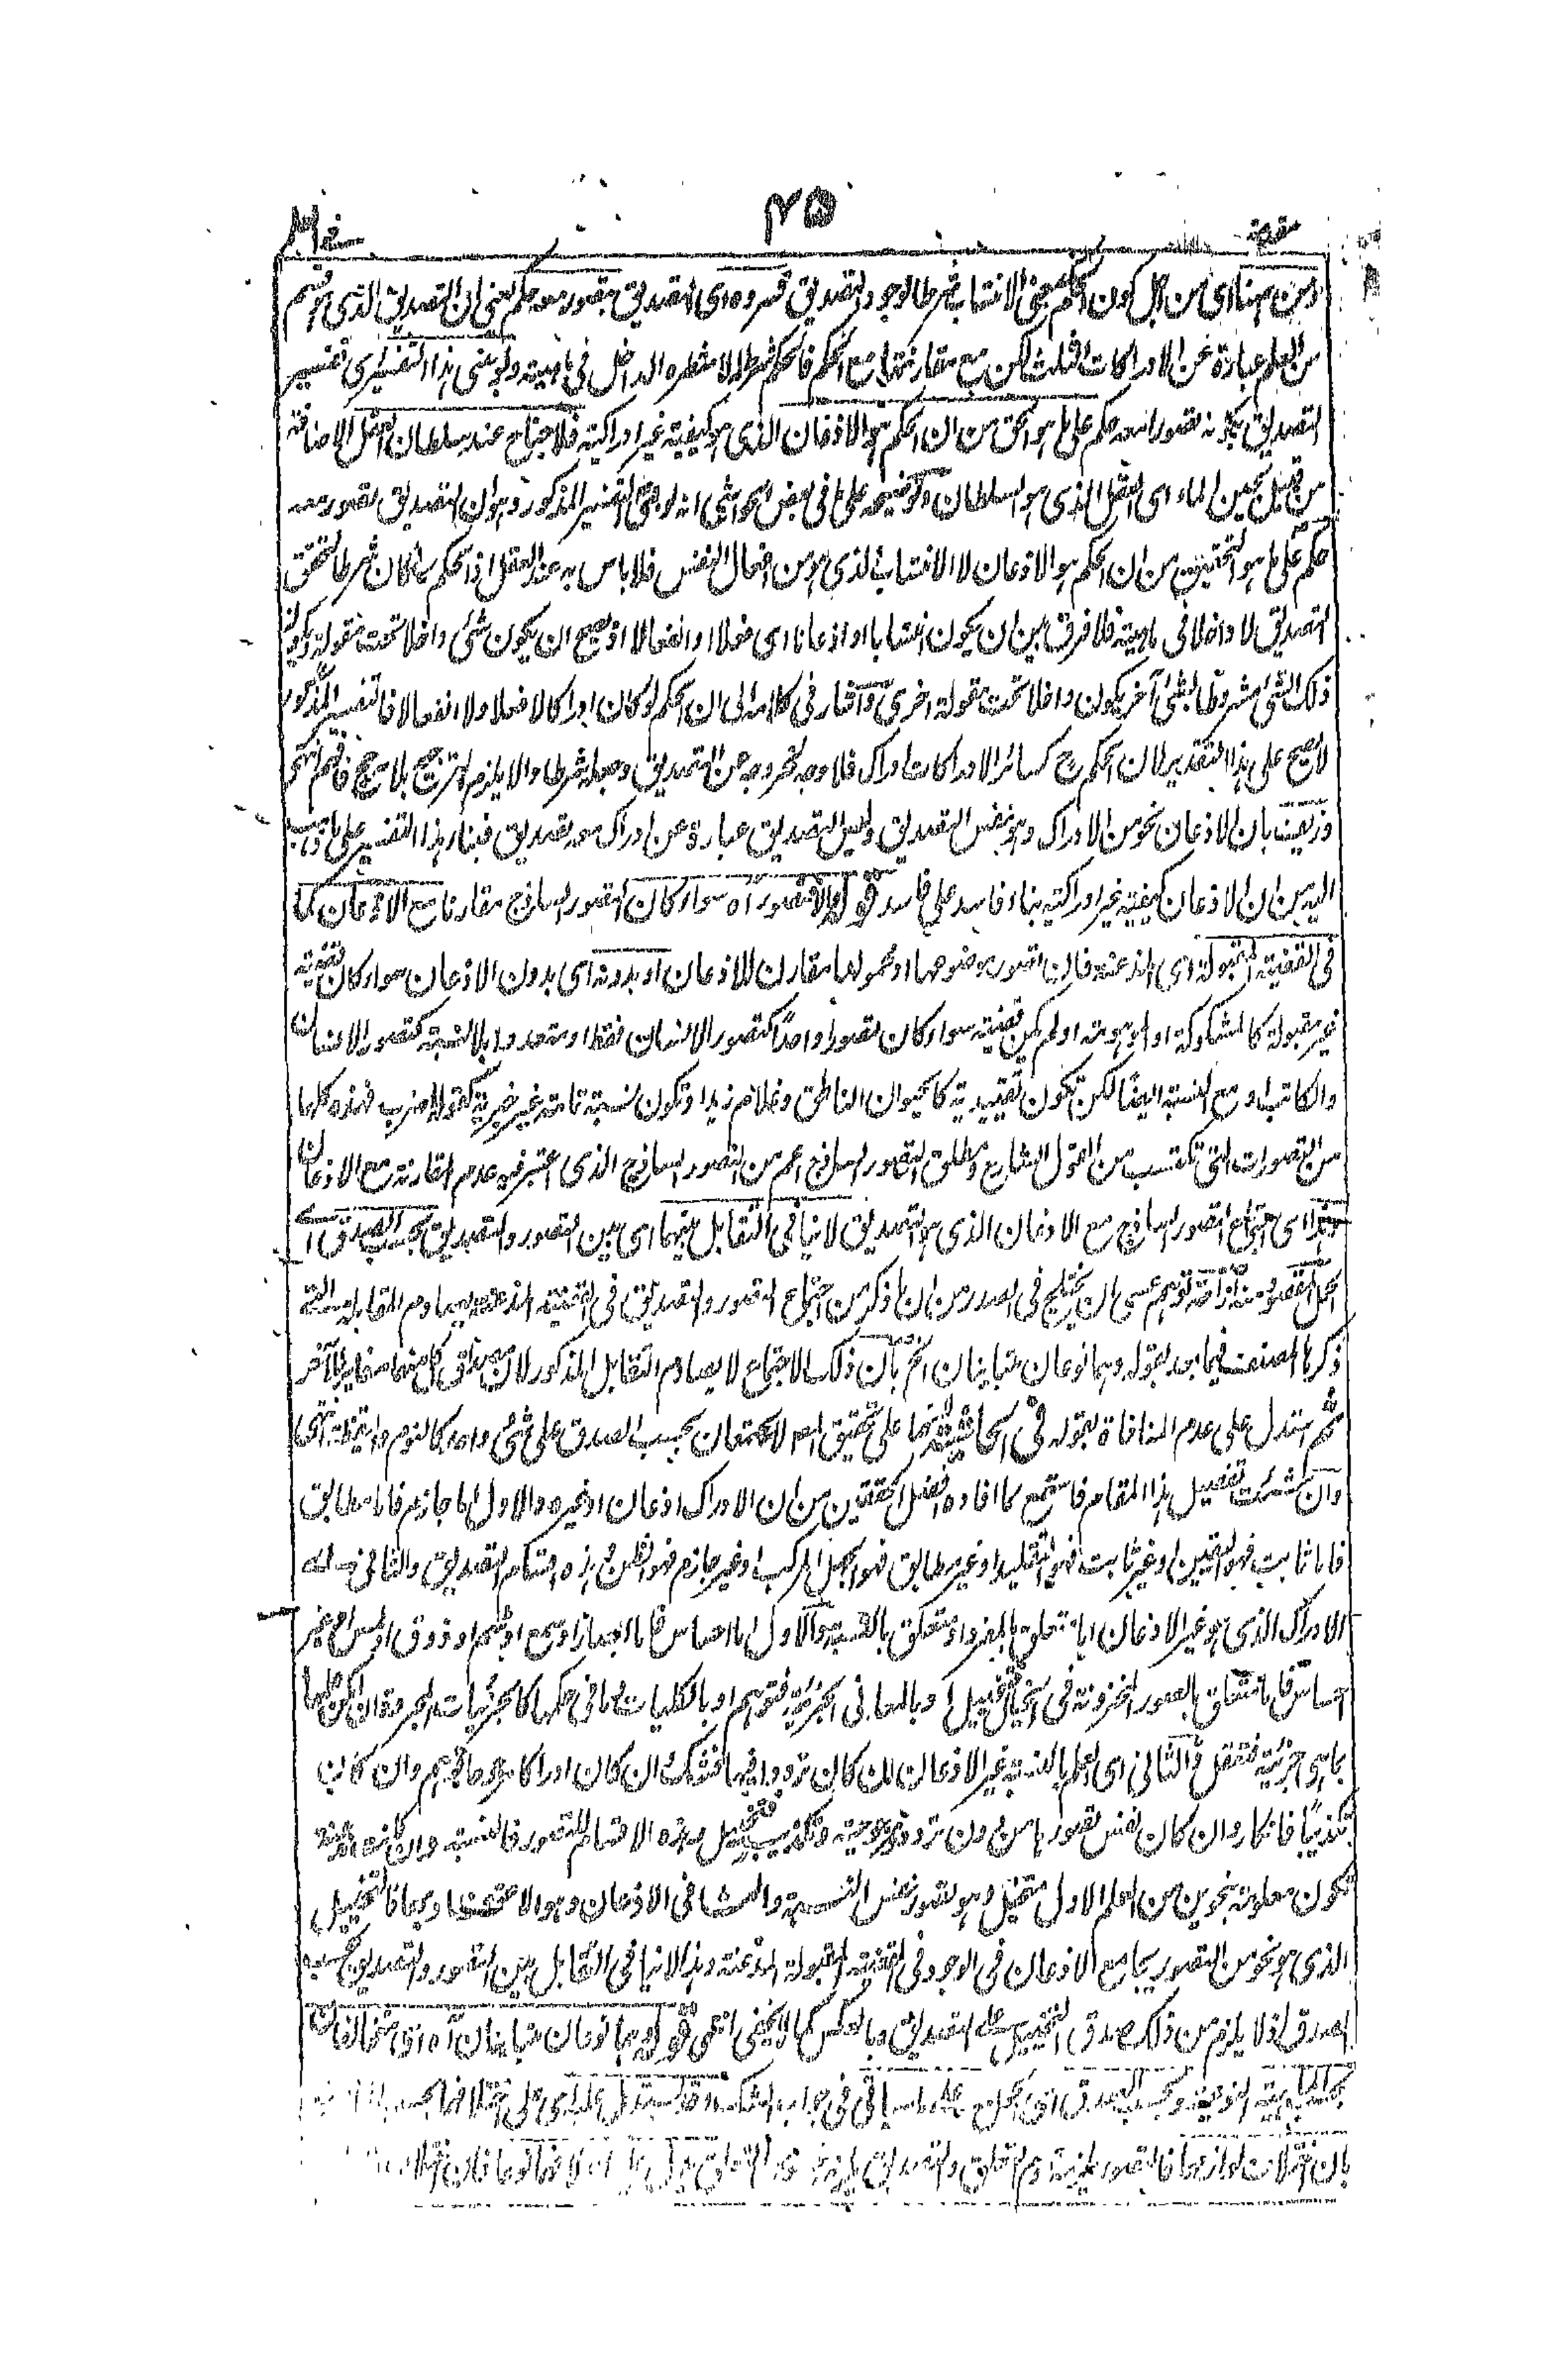 ٢٥
مقدمة
ومن ههنا اى من اجل كون الحكم بمعنى الانتساب شرطا لوجود التصديق فسروه اى التصديق بتصور معه حكم يعنى ان التصديق الذى هو قسم
من العلم عبارة عن الادراكات الثلث لكن مع مقارنتها مع الحكم فالحكم شرط له لا شطره الداخل فى ماهيته ولو بنى هذا التفسير اى تفسير
التصديق بكونه تصورا معه حكم على ما هو الحق من ان الحكم هو الاذعان الذى هو كيفية غير ادراكية فلا جناح عند سلطان العقل الاضافة
من قبيل لجين الماء اى العقل الذى هو السلطان وتوضيحه على ما فى بعض الحواشى انه لو بنى التفسير المذكور وهو ان التصديق تصور معه
حكم على ما هو التحقيق من ان الحكم هو الاذعان لا الانتساب الذى هو من افعال النفس فلا باس به عند العقل اذ الحكم لما كان شرطا لتحقق
التصديق لا داخلا فى ماهيته فلا فرق بين ان يكون انتسابا او اذعانا اى فعلا او انفعالا اذ يصح ان يكون شئ داخلا تحت مقولة ويكون
ذلك الشئ مشروطا بشئ آخر يكون داخلا تحت مقولة اخرى واشار فى كلامه الى ان الحكم لو كان ادراكا لا فعلا ولا انفعالا فالتفسير المذكور
لا يصح على هذا التقدير لان الحكم ح كسائر الادراكات ادراك فلا وجه لخروجه عن التصديق وجعله شرطا والا يلزم الترجيح بلا مرجح فافهم انتهى
وزيف بان الاذعان نحو من الادراك وهو نفس التصديق وليس التصديق عبارة عن ادراك معه تصديق فبناء هذا التفسير على ما ذهب
اليه من ان الاذعان كيفية غير ادراكية بناء فاسد على فاسد قوله والا فتصور اه سواء كان التصور الساذج مقارنا مع الاذعان كما
فى القضية المقبولة اى المذعنة فان تصور موضوعها او محمولها مقارن للاذعان او بدونه اى بدون الاذعان سواء كان قضية
غير مقبولة كالمشكوكة او الموهومة او لم يكن قضية سواء كان تصورا واحدا كتصور الانسان فقط او متعددا بلا نسبة كتصور الانسان
والكاتب او مع النسبة ايضا لكن تكون تقييدية كالحيوان الناطق وغلام زيد او تكون نسبة تامة غير خبرية كقولك اضرب فهذه كلها
من التصورات التى تكتسب من القول الشارح ومطلق التصور الساذج اعم من التصور الساذج الذى اعتبر فيه عدم المقارنة مع الاذعان
وهذا اى اجتماع التصور الساذج مع الاذعان الذى هو التصديق لا ينافى التقابل بينهما اى بين التصور والتصديق بحسب الصدق اى
الحمل المقصود منه ازاحة توهم عسى ان يختلج فى الصدر من ان ما ذكر من اجتماع التصور والتصديق فى القضية المذعنة يصادم المقابلة التى
ذكرها المصنف فيما بعد بقوله وهما نوعان متباينان الخ بان ذلك الاجتماع لا يصادم التقابل المذكور لان مصداق كل منهما مغاير للآخر
ثم استدل على عدم المنافاة بقوله فى الحاشية على تحقيق المص لا يجتمعان بحسب الصدق على شئ واحد كالنوم واليقظة انتهى
وان شئت تفصيل هذا المقام فاستمع كما افاده افضل المحققين من ان الادراك اذعان او غيره والاول اما جازم فاما مطابق
فاما ثابت فهو اليقين او غير ثابت فهو التقليد او غير مطابق فهو الجهل المركب او غير جازم فهو الظن هذه اقسام التصديق والثانى اى
الادراك الذى هو غير الاذعان اما متعلق بالمفرد او متعلق بالنسبة والاول اما احساس فاما ابصار او سمع او شم او ذوق او لمس او غير
احساس فاما متعلق بالصور المخزونة فى الخيال فتخييل او بالمعانى الجزئية فتوهم او بالكليات وما فى حكمها كالجزئيات المجردة
بما هى جزئية فتعقل والثانى اى العلم بالنسبة غير الاذعان ان كان ترددا فيها فشك ان كان ادراكا مرجوحا فوهم وان كان
تكذيبا فانكار وان كان نفس تصورها من دون تردد ومرجوحية وتكذيب فتخييل وهذه الاقسام للتصور فالنسبة وان كانت مذعنة
تكون معلومة بنحوين من العلم الاول متخيل وهو تصور نفس النسبة والثانى الاذعان وهو الاعتقاد بها فالتخييل
الذى هو نحو من التصور يجامع الاذعان فى الوجود فى القضية المقبولة المذعنة وهذا لا ينافى التقابل بين التصور والتصديق بحسب
الصدق اذ لا يلزم من ذلك صدق التخييل على التصديق وبالعكس كما لا يخفى انتهى قوله وهما نوعان متباينان اه اى متخالفان
بحسب الماهية النوعية وبحسب الصدق اى الحمل على ما سياتى فى جواب الشك وقد استدل عليه اى على اختلافهما
بان اختلاف لوازمهما فالتصور يلزمه عموم التعلق والتصديق يلزمه